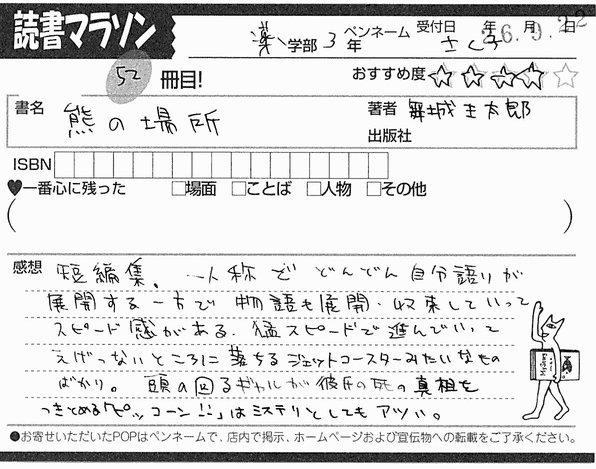 読書マラソン
薬学部 3年 ペンネーム さくら 受付日 年 月 日
26.9.22
52冊目! おすすめ度 ☆☆☆☆☆
書名 熊の場所 著者 舞城王太郎
出版社
ISBN
♥一番心に残った □場面 □ことば □人物 □その他
( )
感想 短編集。一人称でどんどん自分語りが
展開する一方で物語も展開・収束していって
スピード感がある。猛スピードで進んでいって
えげつないところに落ちるジェットコースターみたいなもの
ばかり。頭の回るギャルが彼氏の死の真相を
つきとめる「ピコーン!!」はミステリとしてもアツい。
●お寄せいただいたPOPはペンネームで、店内で掲示、ホームページおよび宣伝物への転載をご了承ください。